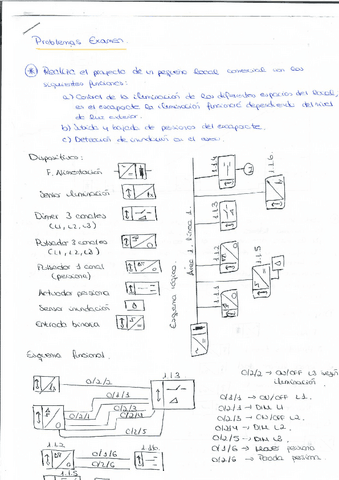 Problemas Examen.
Realice el proyecto de un pequeño local comercial con las
siguientes funciones:
a) Control de la iluminación de los diferentes espacios del local,
en el escaparate la iluminación funcionará dependiendo del nivel
de luz exterior.
b) Subida y bajada de persianas del escaparate.
c) Detección de inundación en el aseo.
Dispositivos:
F. Alimentación
Sensor iluminación
Dimer 3 canales
(L1, L2, L3)
Pulsador 3 canales
(L1, L2, L3)
Pulsador 1 canal
(persiana)
Actuador persiana
Sensor inundación
Entrada binaria
Esquema lógico.
Área 1. línea 1.
1.1.4
1.1.6
1.1.3
1.1.2
1.1.5
1.1.1
Esquema funcional.
0/2/2
1.1.3
0/2/1
0/2/3
0/2/4
0/2/5
1.1.2
0/3/6
0/2/6
1.1.6
1.1.5
0/2/2 → ON/OFF L3 según
iluminación
→ ON/OFF L1.
→ DIM L1
0/2/3 → ON/OFF L2.
0/2/4 → DIM L2.
0/2/5 → DIM L3.
0/3/6 → Mover persiana
0/2/6 → Parada persiana.